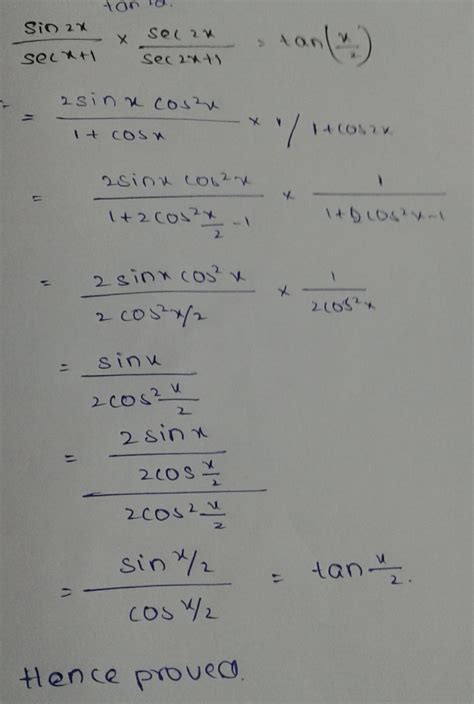 sin2x/secx+1 × sec2x/sec2x+1 = tan(x/2)
= 2sinx cos²x/1+cosx × 1/1+cos2x
= 2sinx cos²x/1+2cos²x/2-1 × 1/1+2cos²x-1
= 2sinx cos²x/2cos²x/2 × 1/2cos²x
= sinx/2cos²x/2
= 2sinx/2cosx/2/2cos²x/2
= sinx/2/cosx/2 = tanx/2.
Hence proved.